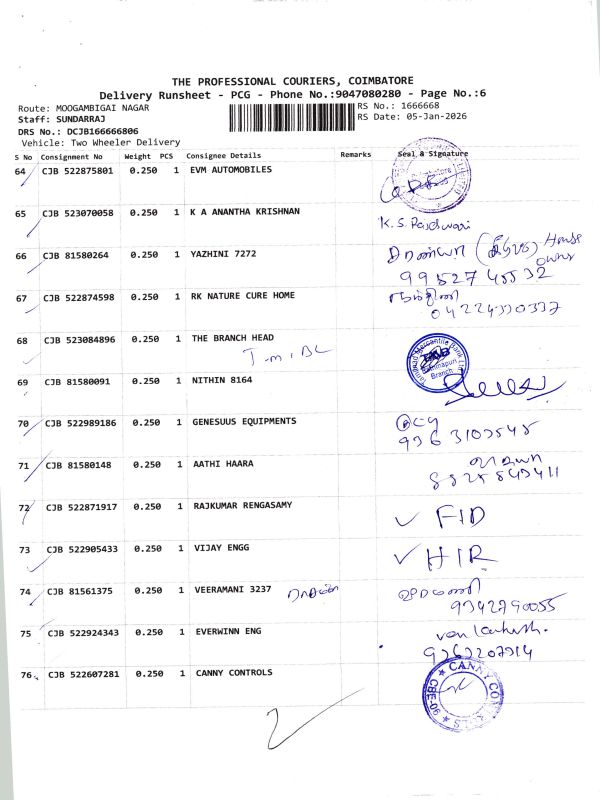 THE PROFESSIONAL COURIERS, COIMBATORE
Delivery Runsheet - PCG - Phone No.:9047080280 - Page No.:6
Route: MOOGAMBIGAI NAGAR
RS No.: 1666668
Staff: SUNDARRAJ
RS Date: 05-Jan-2026
DRS No.: DCJB166666806
Vehicle: Two Wheeler Delivery
S No Consignment No Weight PCS Consignee Details Remarks Seal & Signature
64 CJB 522875801 0.250 1 EVM AUTOMOBILES
65 CJB 523070058 0.250 1 K A ANANTHA KRISHNAN
66 CJB 81580264 0.250 1 YAZHINI 7272 House
owner
99527 45532
67 CJB 522874598 0.250 1 RK NATURE CURE HOME
04224330337
68 CJB 523084896 0.250 1 THE BRANCH HEAD
Mercantile Bank
Branch
69 CJB 81580091 0.250 1 NITHIN 8164
70 CJB 522989186 0.250 1 GENESUUS EQUIPMENTS
71 CJB 81580148 0.250 1 AATHI HAARA
72 CJB 522871917 0.250 1 RAJKUMAR RENGASAMY FID
73 CJB 522905433 0.250 1 VIJAY ENGG HIR
74 CJB 81561375 0.250 1 VEERAMANI 3237
9342790055
75 CJB 522924343 0.250 1 EVERWINN ENG
9363207314
76 CJB 522607281 0.250 1 CANNY CONTROLS CANNY CONTROLS
CBE-06
2